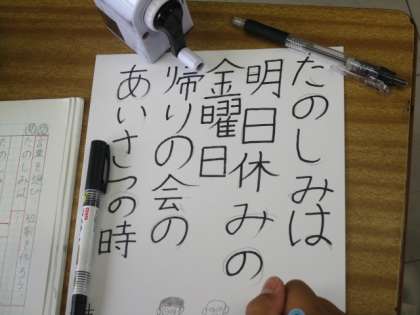 たのしみは
明日休みの
金曜日
帰りの会の
あいさつの時
たのしみは